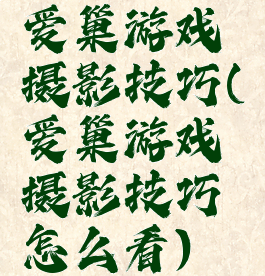 爱巢游戏
摄影技巧(
爱巢游戏
摄影技巧
怎么看)